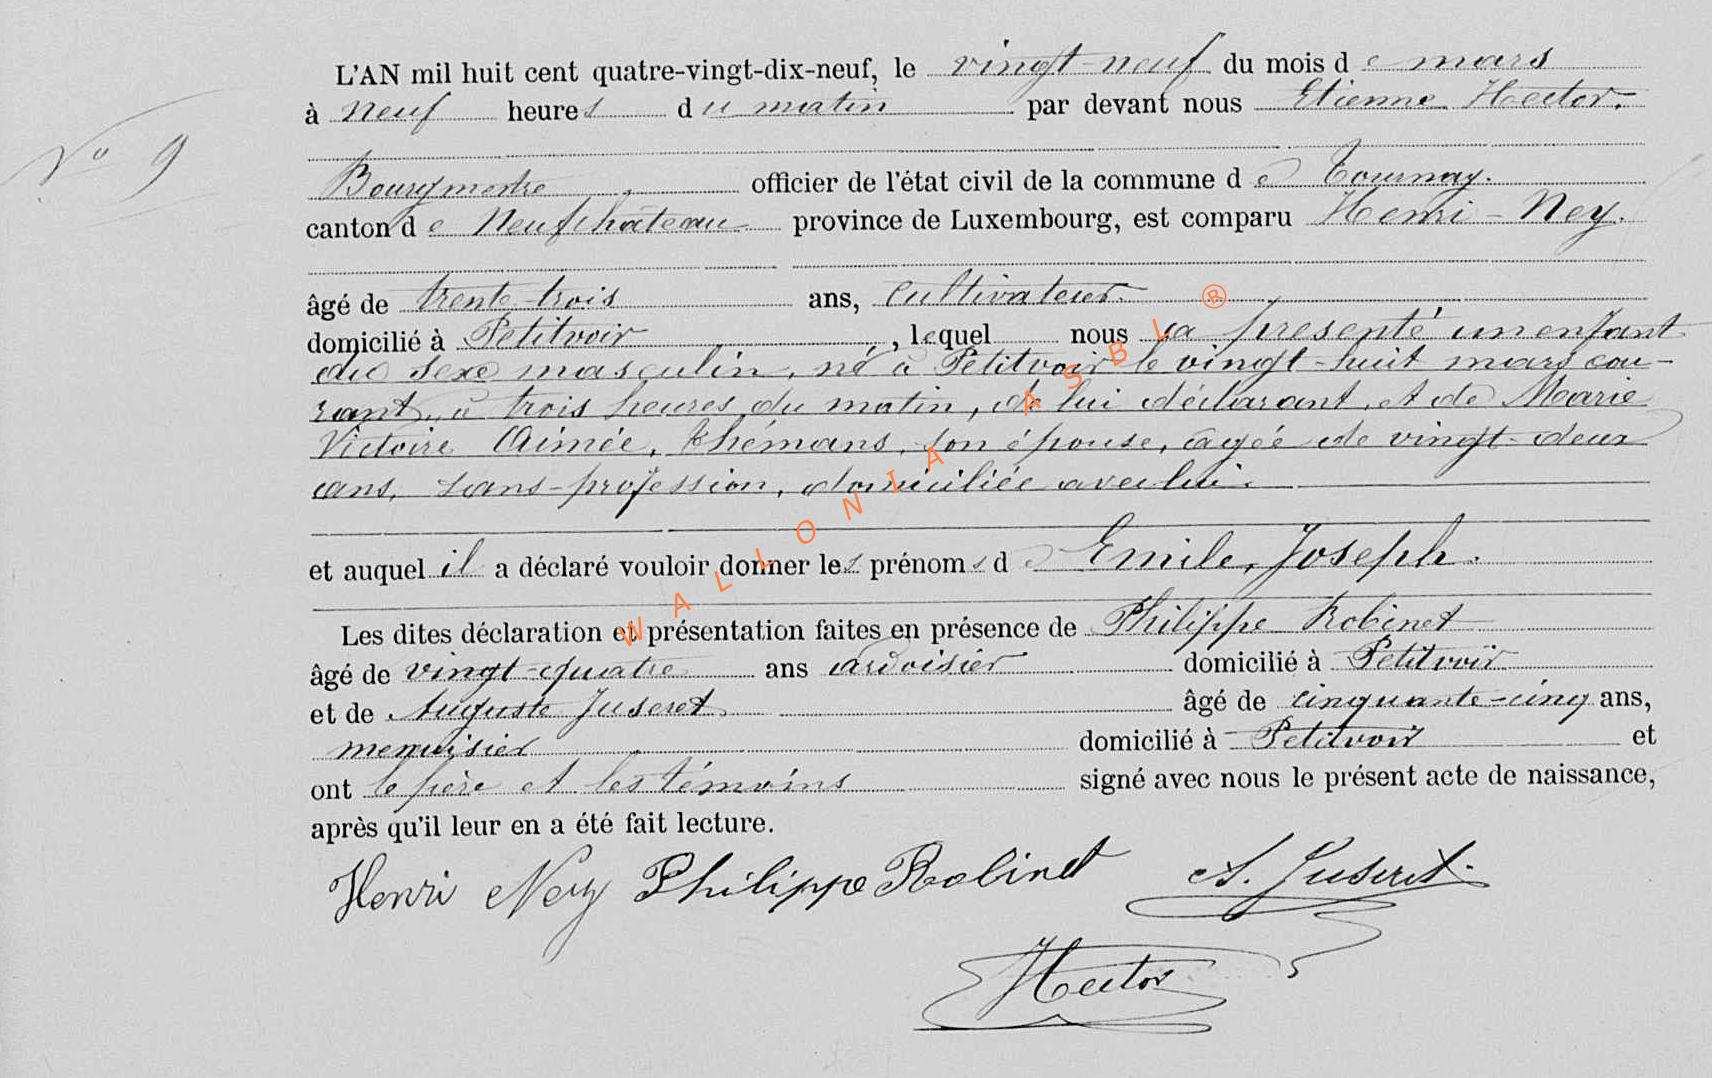 L'AN mil huit cent quatre-vingt-dix-neuf, le vingt-neuf du mois de mars
à neuf heures du matin par devant nous Etienne Hector.
N° 9
Bourgmestre, officier de l'état civil de la commune de Tournay.
canton de Neufchâteau province de Luxembourg, est comparu Henri - Ney.
âgé de trente-trois ans, cultivateur.
domicilié à Petitvoir, lequel nous a presenté un enfant
du sexe masculin, né à Petitvoir le vingt-huit mars cou-
rant, à trois heures du matin, de lui déclarant, et de Marie
Victoire Aimée, Thémans, son épouse, agée de vingt-deux
ans, sans-profession, domiciliée avec lui.
et auquel il a déclaré vouloir donner les prénoms de Emile, Joseph.
Les dites déclaration et présentation faites en présence de Philippe Robinet
âgé de vingt-quatre ans ardoisier domicilié à Petitvoir
et de Auguste Juseret âgé de cinquante-cinq ans,
menuisier domicilié à Petitvoir et
ont le père et les témoins signé avec nous le présent acte de naissance,
après qu'il leur en a été fait lecture.
Henri Ney Philippe Robinet A. Juseret.
Hector
WALLONIA ASBL ®